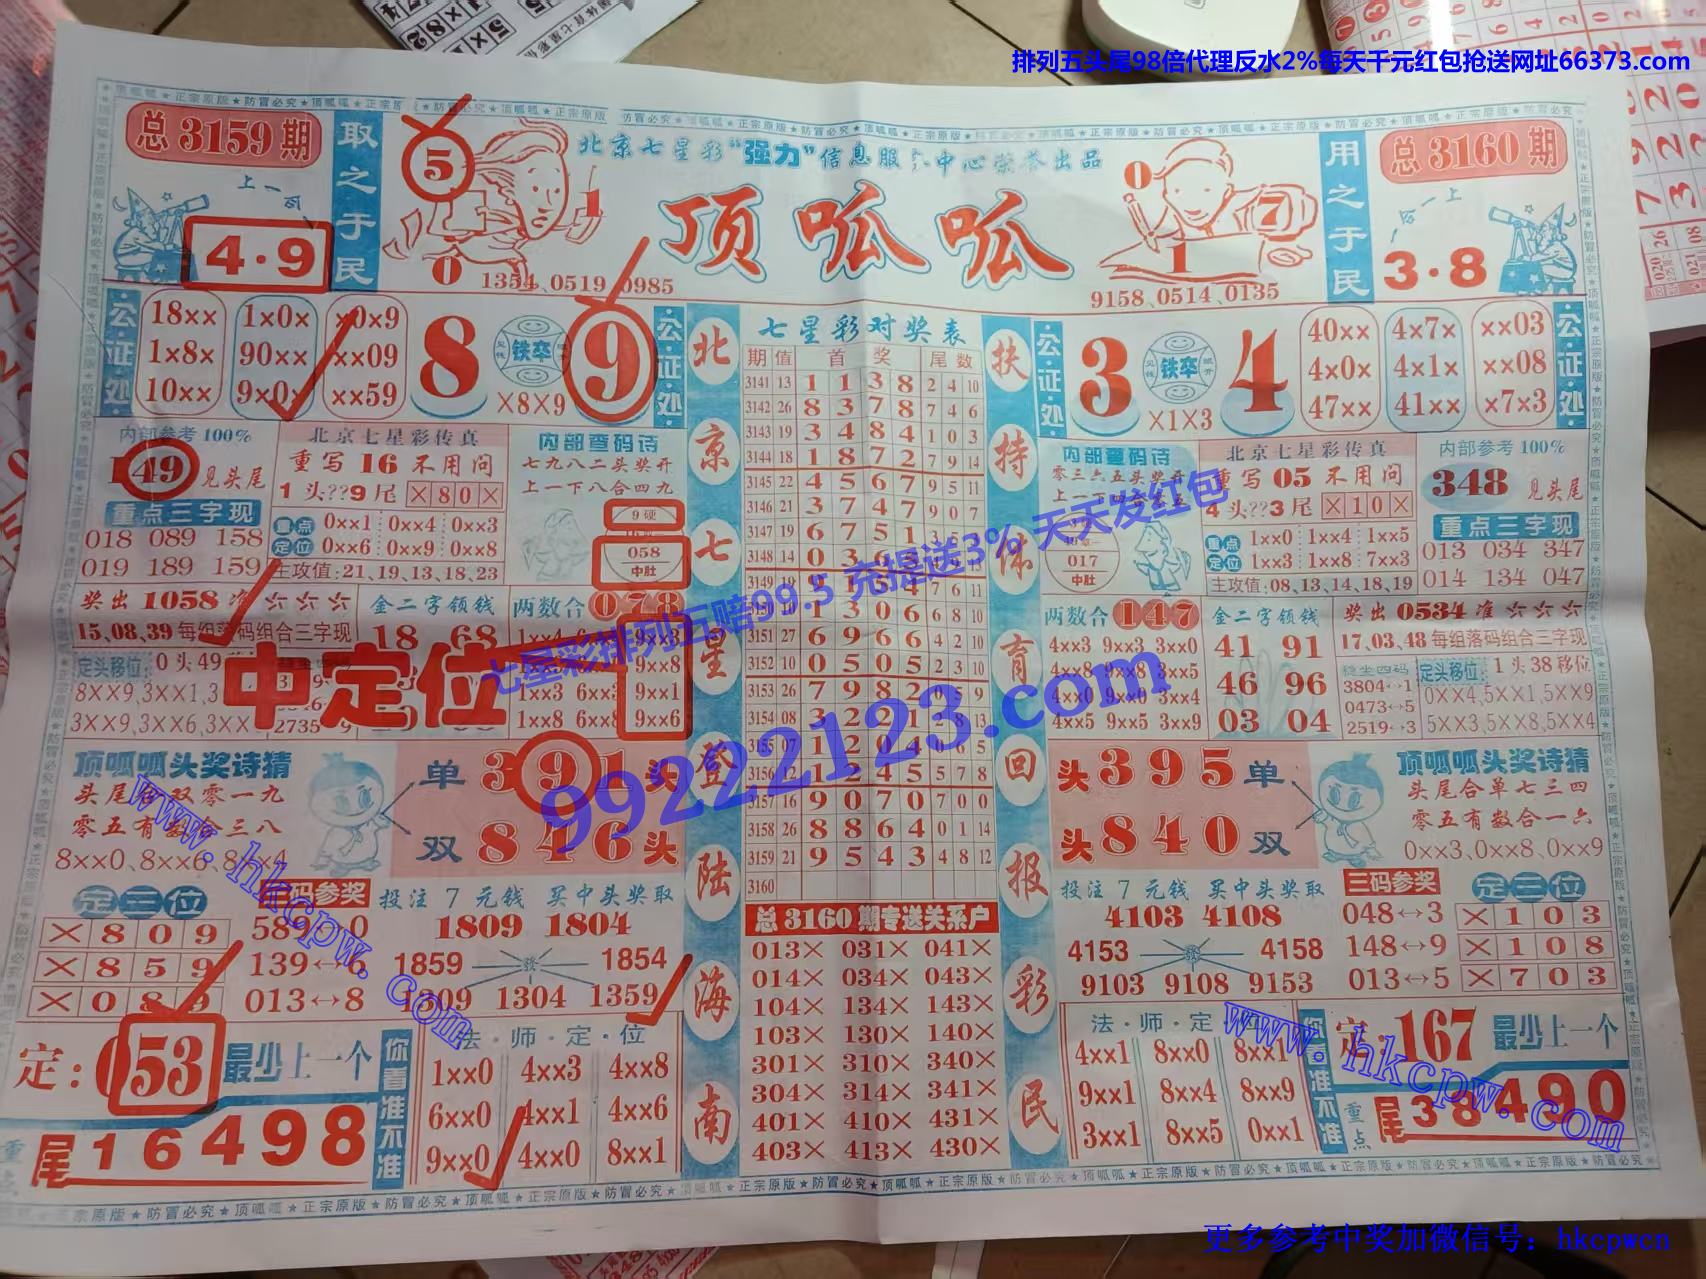 排列五头尾98倍代理反水2%每天千元红包抢送网址66373.com
总3159期
取之于民
4·9
5
1
0
1354、0519、0985
北京七星彩"强力"信息服务中心荣誉出品
顶呱呱
0
7
1
9158、0514、0135
用之于民
总3160期
3·8
公证处
18×× 1×0× ×0×9
1×8× 90×× ××09
10×× 9×0× ××59
8 铁卒 9
×8×9
公证处
内部参考100%
149 见头尾
重点三字现
018 089 158
019 189 159
北京七星彩传真
重写16不用问
1头??9尾 ×80×
重点定位
0××1 0××4 0××3
0××6 0××9 0××8
主攻值:21、19、13、18、23
内部查码诗
七九八二头奖开
上一下八合四九
9硬
058
中肚
奖出1058准
15、08、39每组落码组合三字现
金二字领钱
18 68
两数合078
定头移位:
9××3
9××8
1××3 6××3 9××1
1××8 6××8 9××6
中定位
顶呱呱头奖诗猜
头尾合双零一九
零五有数合三八
单391头
双846头
定三位
×809
×859
×089
三码参奖
139↔6
013↔8
投注7元钱 买中头奖取
1809 1804
1859 1854
1309 1304 1359
定:053最少上一个
重点 尾16498
你看准不准
法·师·定·位
1××0 4××3 4××8
6××0 4××1 4××6
9××0 4××0 8××1
北京七星登陆海南
七星彩对奖表
期 值 首奖 尾数
3141 13 1 1 3 8 2 4 10
3142 26 8 3 7 8 7 4 6
3143 19 3 4 8 4 1 0 3
3144 18 1 8 7 2 7 9 14
3145 22 4 5 6 7 9 5 11
3146 21 3 7 4 7 9 0 7
3147 19 6 7 5 1
3148 14 0 3 6
3151 27 6 9 6 6 4 2 10
3152 10 0 5 0 5 2 3 10
3153 26 7 9 8 2 0 5 9
3154 08 3 2 2 1 2 8 13
3155 07 1 2 0 4 0 6 5
3156 12 1 2 4 5 5 7 8
3157 16 9 0 7 0 7 0 0
3158 26 8 8 6 4 0 1 14
3159 21 9 5 4 3 4 8 12
3160
总3160期专送关系户
013× 031× 041×
014× 034× 043×
104× 134× 143×
103× 130× 140×
301× 310× 340×
304× 314× 341×
401× 410× 431×
403× 413× 430×
扶持体育回报彩民
公证处
3 铁卒 4
×1×3
40×× 4×7× ××03
4×0× 4×1× ××08
47×× 41×× ×7×3
公证处
内部查码诗
零三六五头奖开
017
中肚
北京七星彩传真
重写05不用问
4头??3尾 ×10×
重点定位
1××0 1××4 1××5
1××3 1××8 7××3
主攻值:08、13、14、18、19
内部参考100%
348 见头尾
重点三字现
013 034 347
014 134 047
两数合147
4××3 9××3 3××0
4××8 9××8 3××5
4××0 9××0 3××4
4××5 9××5 3××9
金二字领钱
41 91
46 96
03 04
奖出0534准
17、03、48每组落码组合三字现
3804↔1
0473↔5
2519↔3
定头移位:1头38移位
0××4,5××1,5××9
5××3,5××8,5××4
头395单
头840双
顶呱呱头奖诗猜
头尾合单七三四
零五有数合一六
0××3、0××8、0××9
投注7元钱 买中头奖取
4103 4108
4153 4158
9103 9108 9153
三码参奖
048↔3
148↔9
013↔5
定三位
×103
×108
×703
法·师·定·位
4××1 8××0 8××1
9××1 8××4 8××9
3××1 8××5 0××1
你看准不准
定:167最少上一个
重点 尾38490
七星彩排列五赔99.5 充提送3% 天天发红包
99222123.com
www.hkcpw.com
www.hkcpw.com
更多参考中奖加微信号：hkcpwcn